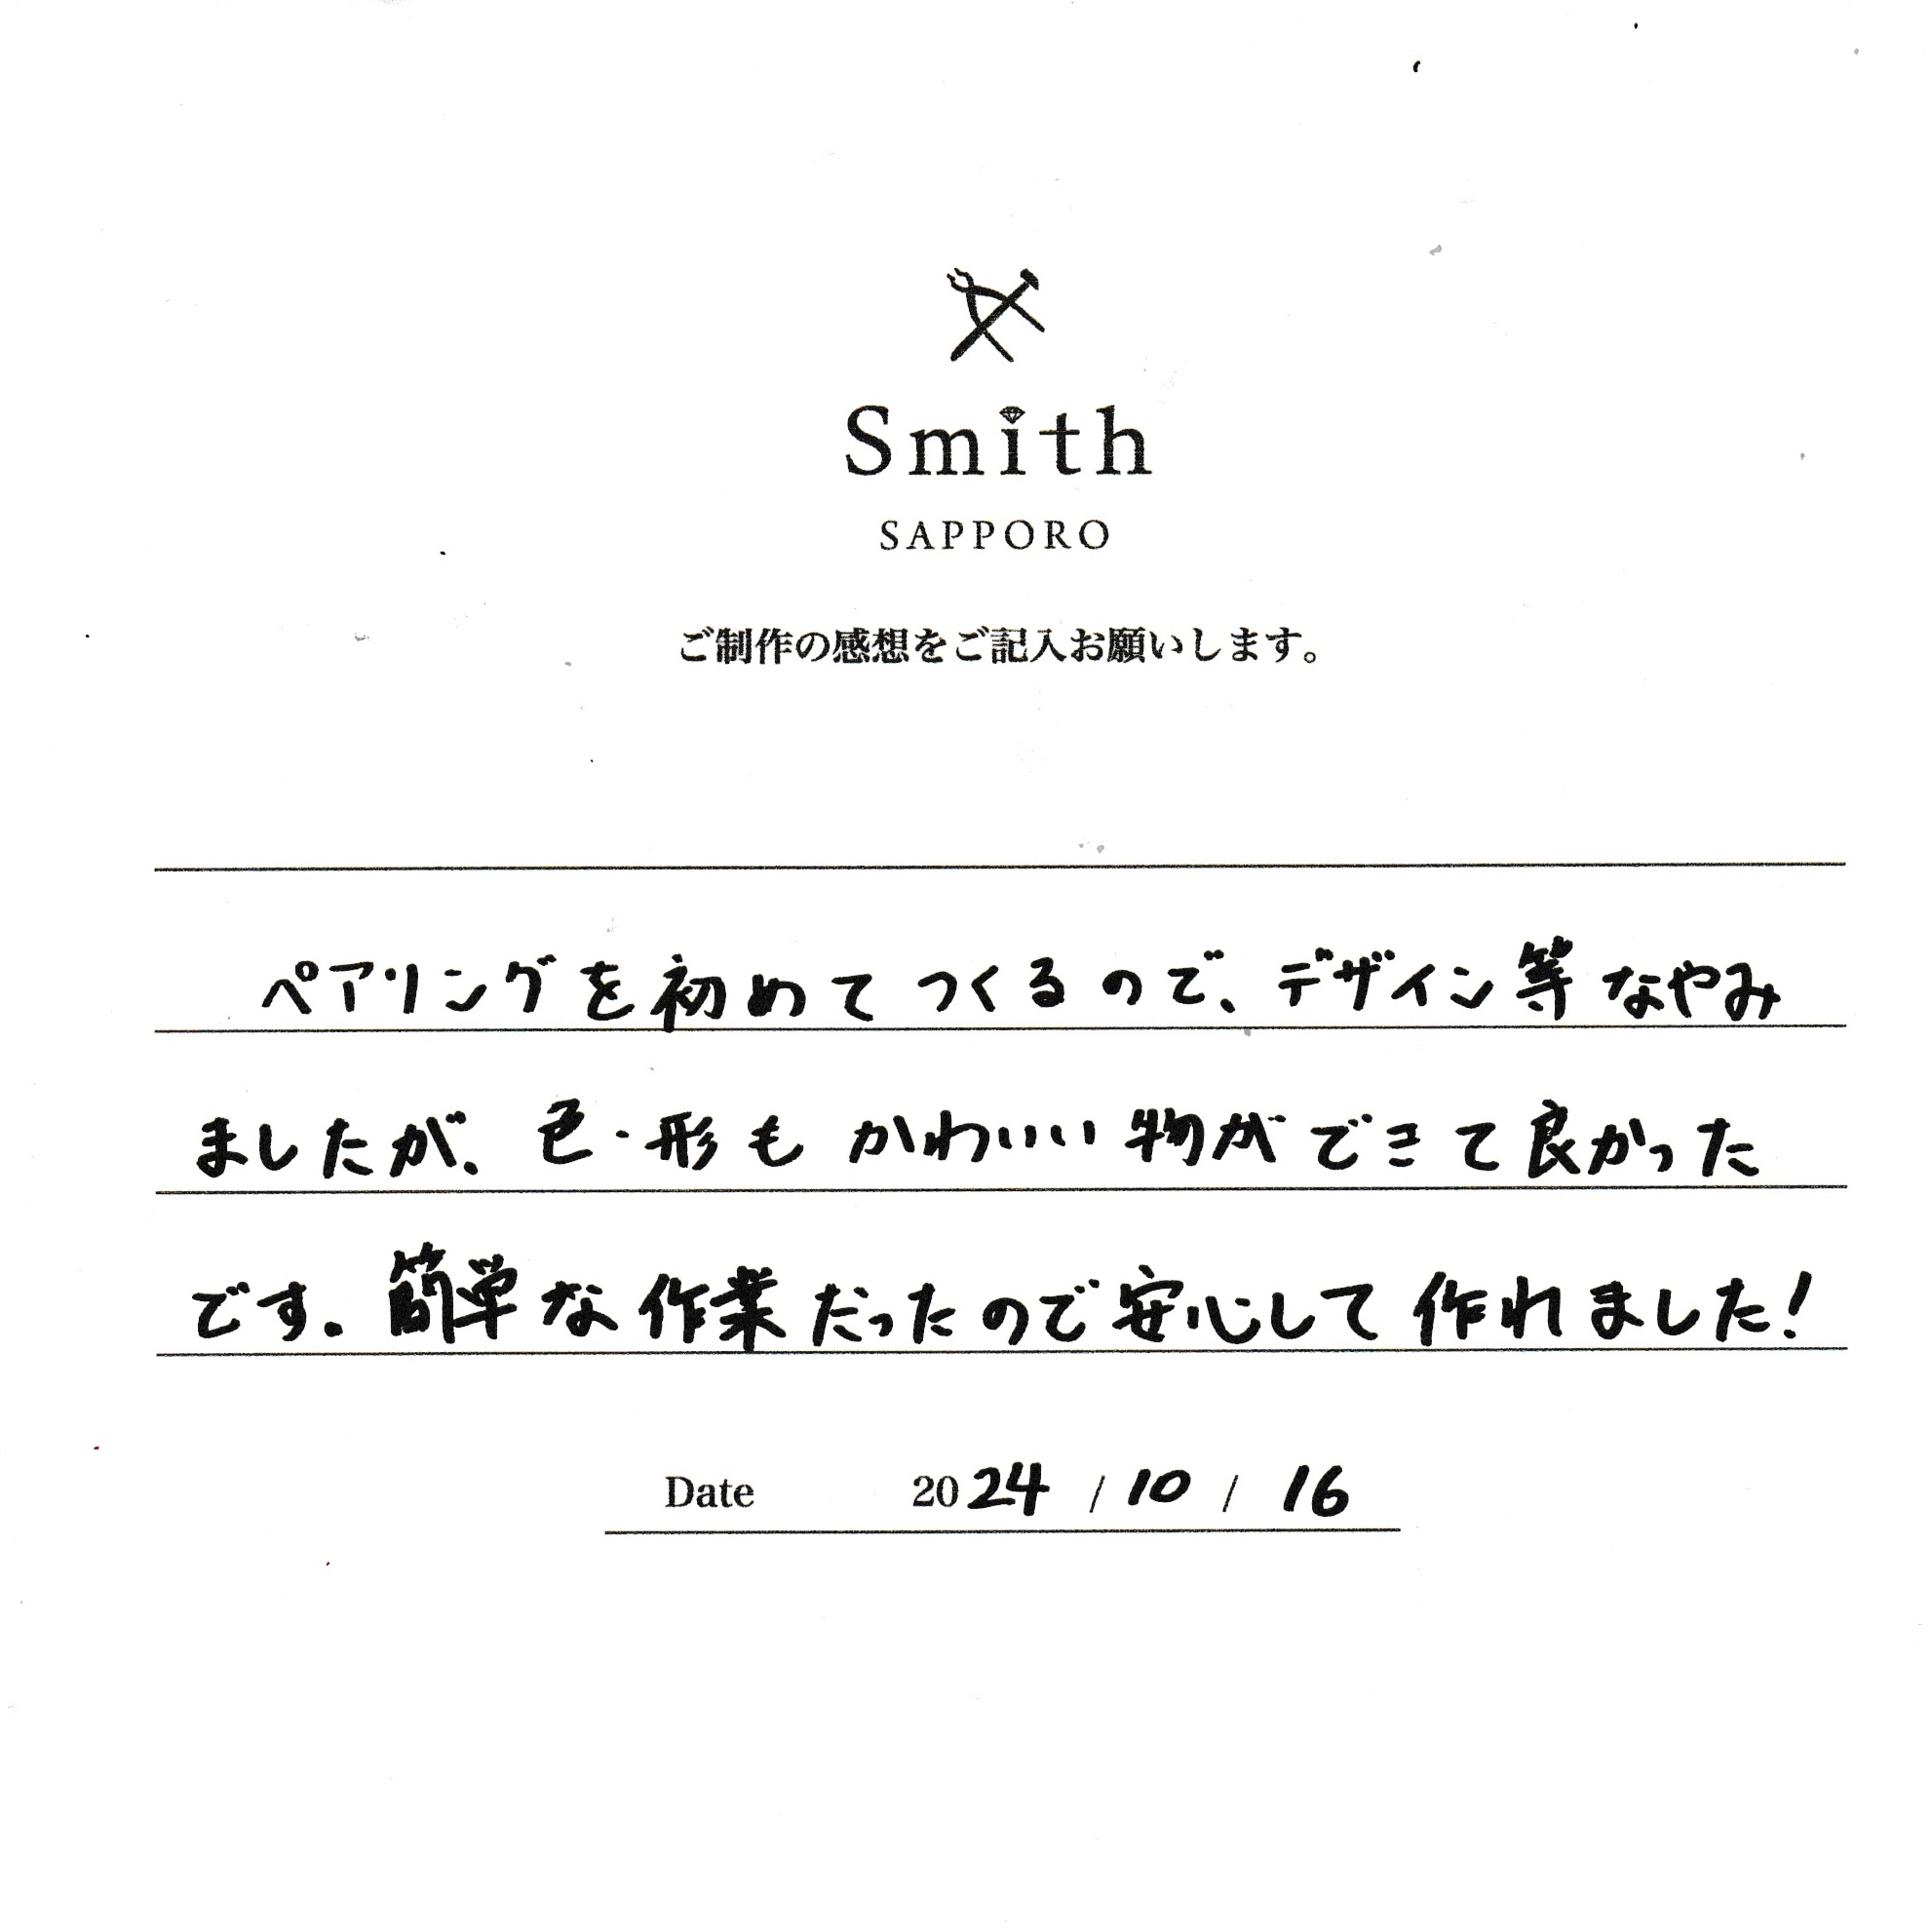 Smith
SAPPORO
ご制作の感想をご記入お願いします。
ペアリングを初めてつくるので、デザイン等なやみ
ましたが、色・形もかわいい物ができて良かった
です。簡単な作業だったので安心して作れました!
Date 2024 / 10 / 16